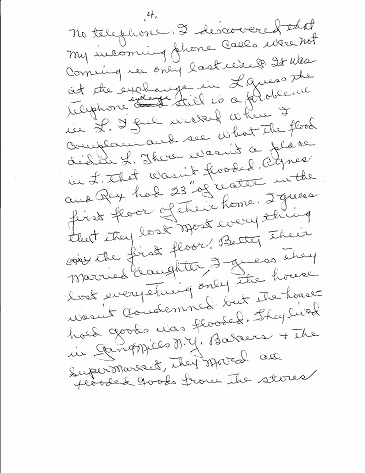 .4.
no telephone. I discovered that
my incoming phone calls were not
coming in only last week. It was
at the exchange in L. guess the
telephone exchange still is a problem
in L. I feel wicked when I
complain and see what the flood
did in L. There wasn't a place
in L. that wasn't flooded. Agnes
and Rex had 23" of water in the
first floor of their home. I guess
that they lost most every thing
on the first floor. Betty their
married daughter, I guess they
lost everything only the house
wasn't condemned but the house
hold goods was flooded. They lived
in Gang Mills N.Y. Bakers + the
Supermarket, they moved all
flooded goods from the stores